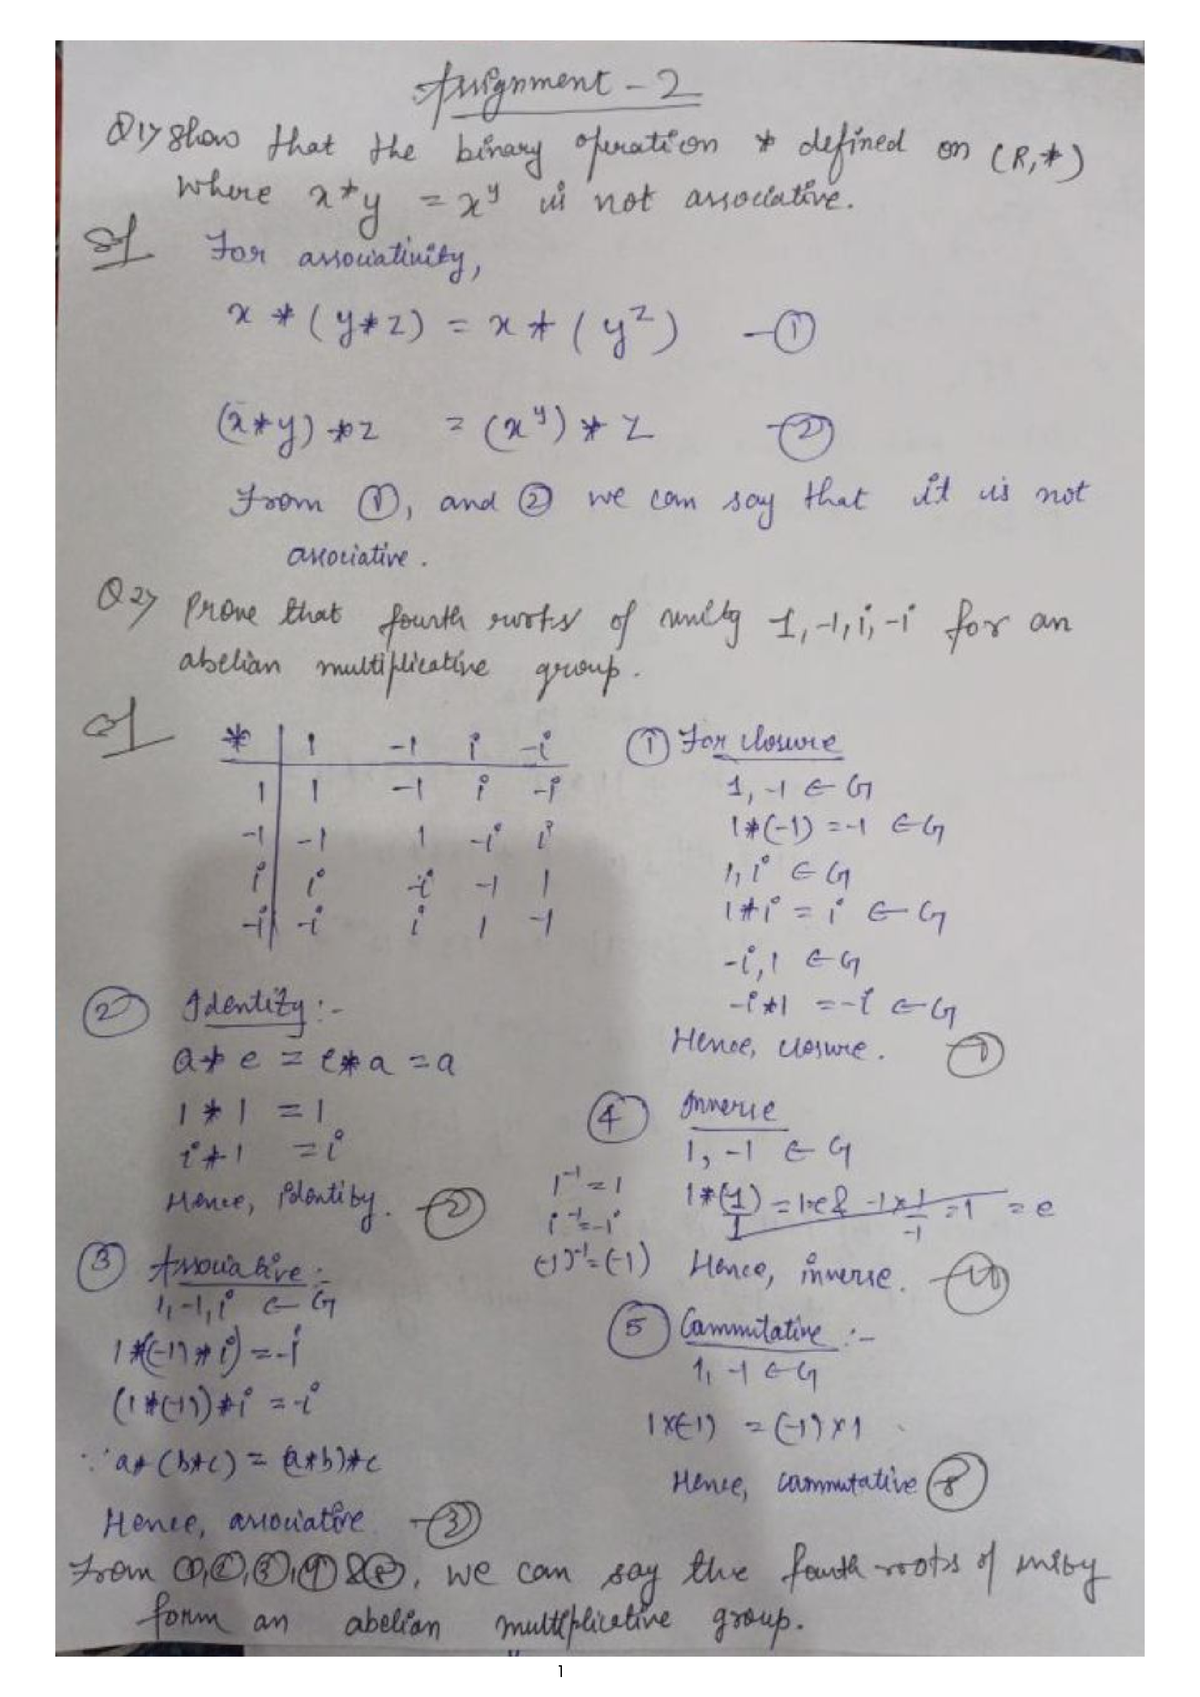 Assignment - 2
Q1> Show that the binary operation * defined on (R,*)
where x*y = x^y is not associative.
Sol
For associativity,
x * (y*z) = x * (y^z) - ①
(x*y) *z = (x^y) * z - ②
From ①, and ② we can say that it is not
associative.
Q2> Prove that fourth roots of unity 1,-1,i,-i for an
abelian multiplicative group.
Sol
* | 1 -1 i -i
1 | 1 -1 i -i
-1 | -1 1 -i i
i | i -i -1 1
-i | -i i 1 -1
① For closure
1, -1 ∈ G
1*(-1) = -1 ∈ G
1, i ∈ G
1*i = i ∈ G
-i, 1 ∈ G
-i*1 = -i ∈ G
Hence, closure. - ①
② Identity :-
a* e = e*a = a
1 * 1 = 1
i*1 = i
Hence, identity. - ②
③ Associative :-
1, -1, i ∈ G
1*((-1)*i) = -i
(1*(-1))*i = -i
∵ a*(b*c) = (a*b)*c
Hence, associative - ③
④ Inverse
1, -1 ∈ G
1^-1 = 1
i^-1 = -i
(-1)^-1 = (-1)
= e
Hence, inverse.
⑤ Cammutative :-
1, -1 ∈ G
1×(-1) = (-1)×1
Hence, cammutative
From ①,②,③,④ & ⑤, we can say the fourth roots of unity
form an abelian multiplicative group.
1